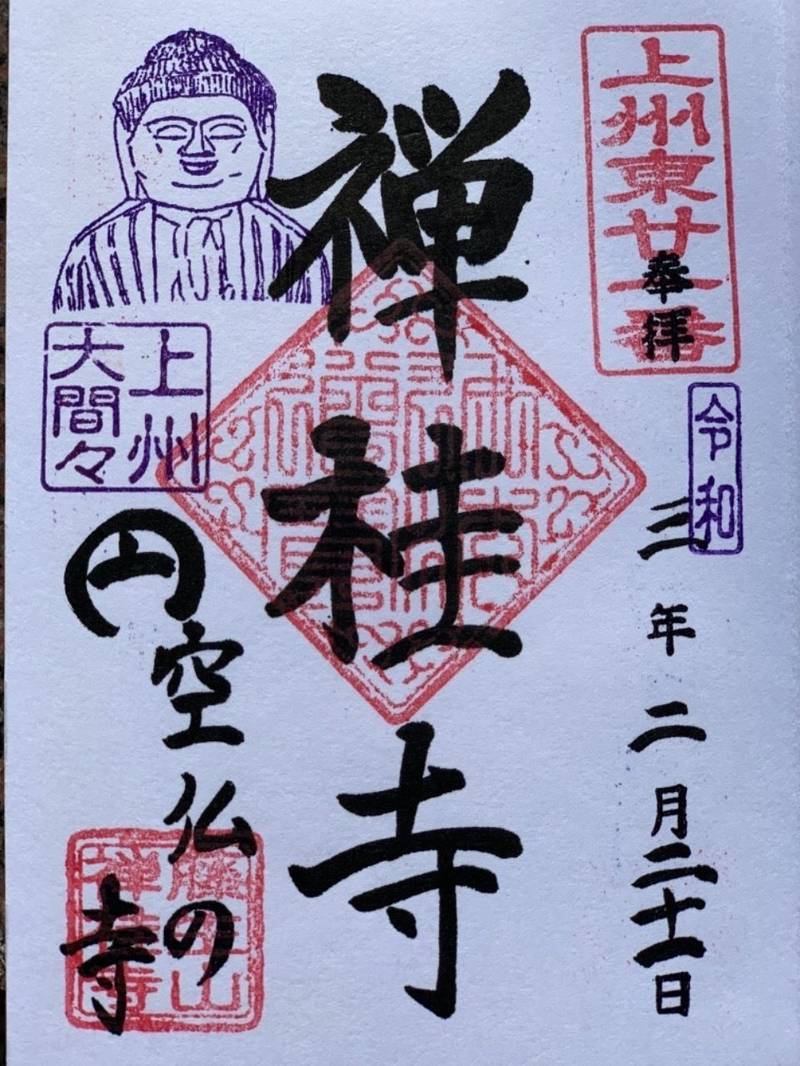 上州東廿一番
奉拝
令和
三年二月二十一日
禅桂寺
上州
大間々
円空仏の寺
山
禅桂寺